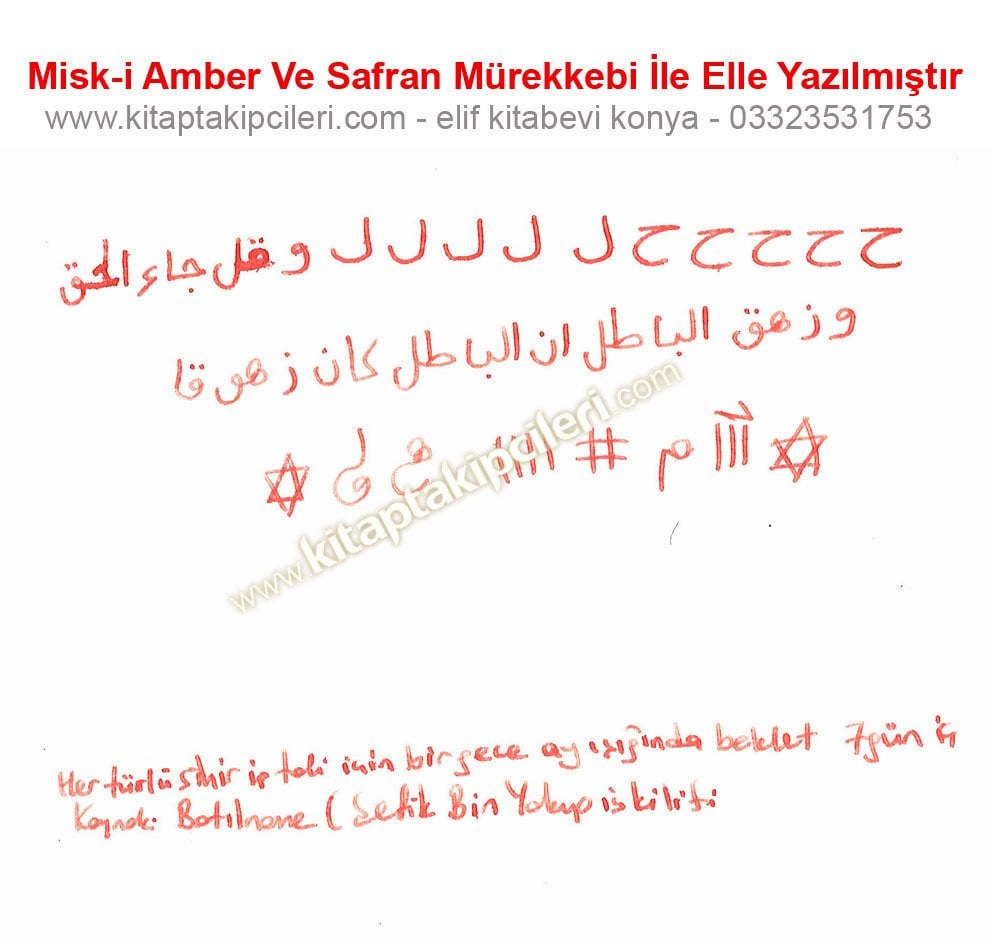 Misk-i Amber Ve Safran Mürekkebi İle Elle Yazılmıştır
www.kitaptakipcileri.com - elif kitabevi konya - 03323531753
ح ح ح ح ح ل ل ل ل ل و قل جاء الحق
و زهق الباطل ان الباطل كان زهوقا
✡ م # |||| ✡
www.kitaptakipcileri.com
Her türlü sihir iptali için bir gece ay ışığında beklet 7gün iç
Kaynak: Batılname ( Şefik Bin Yakup iskiliti